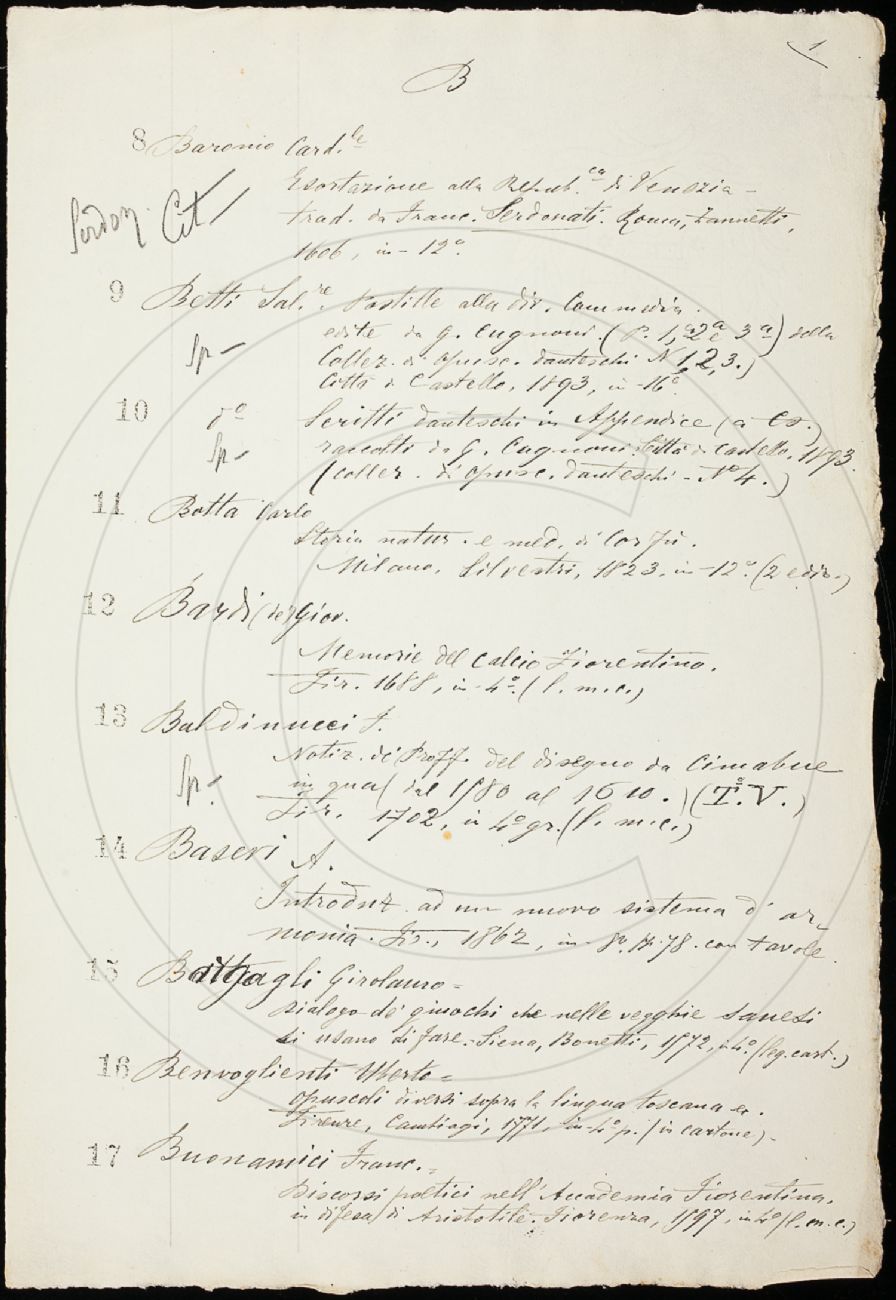 1
B
8 Baronio Card.le
Esortazione alla Repub.ca di Venezia -
trad. da Franc. Serdonati. Roma, Zannetti,
Serdon. Cit
1606, in - 12°.
9 Betti Sal.re Postille alla div. Commedia.
edite da G. Cugnoni. (P. 1,a 2a e 3a) della
Sp -
Collez. di opusc. danteschi N 1, 2, 3.)
Città di Castello, 1893, in - 16°
10 d° Scritti danteschi in Appendice (a es.)
Sp - raccolti da G. Cugnoni. Città di Castello. 1893.
(collez. di opusc. danteschi - N° 4.)
11 Botta Carlo
Storia natur. e med. di Corfù.
Milano, Silvestri, 1823, in - 12°. (2 ediz.)
12 Bardi (de) Giov.
Memorie del calcio Fiorentino.
Fir. 1688, in - 4°. (l. m. c.)
13 Baldinucci F.
Notiz. de' Proff. del disegno da Cimabue
Sp. in qua (dal 1580 al 1610.) (T.° V.)
Fir. 1702, in 4° gr. (l. m. c.)
14 Basevi A.
Introduz. ad un nuovo sistema d' ar-
monia. Fir., 1862, in - 8°. con tavole.
15 Battagli Girolamo =
Dialogo de' giuochi che nelle vegghie sanesi
si usano di fare. - Siena, Bonetti, 1572, in 4° (leg. cart.)
16 Benvoglienti Uberto =
Opuscoli diversi sopra la lingua toscana ec.
Firenze, Cambiagi, 1771, in - 4° p. (in cartone) -
17 Buonamici Franc. =
Discorsi poetici nell' Accademia Fiorentina,
in difesa di Aristotile. Fiorenza, 1597, in 4° (l. m. c.)